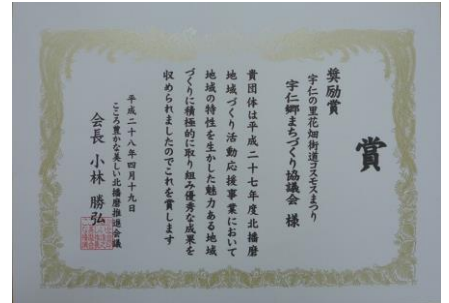 賞
奨励賞
宇仁の里花畑街道コスモスまつり
宇仁郷まちづくり協議会 様
貴団体は平成二十七年度北播磨
地域づくり活動応援事業において
地域の特性を生かした魅力ある地域
づくりに積極的に取り組み優秀な成果を
収められましたのでこれを賞します
平成二十八年四月十九日
こころ豊かな美しい北播磨推進会議
会長 小林 勝弘